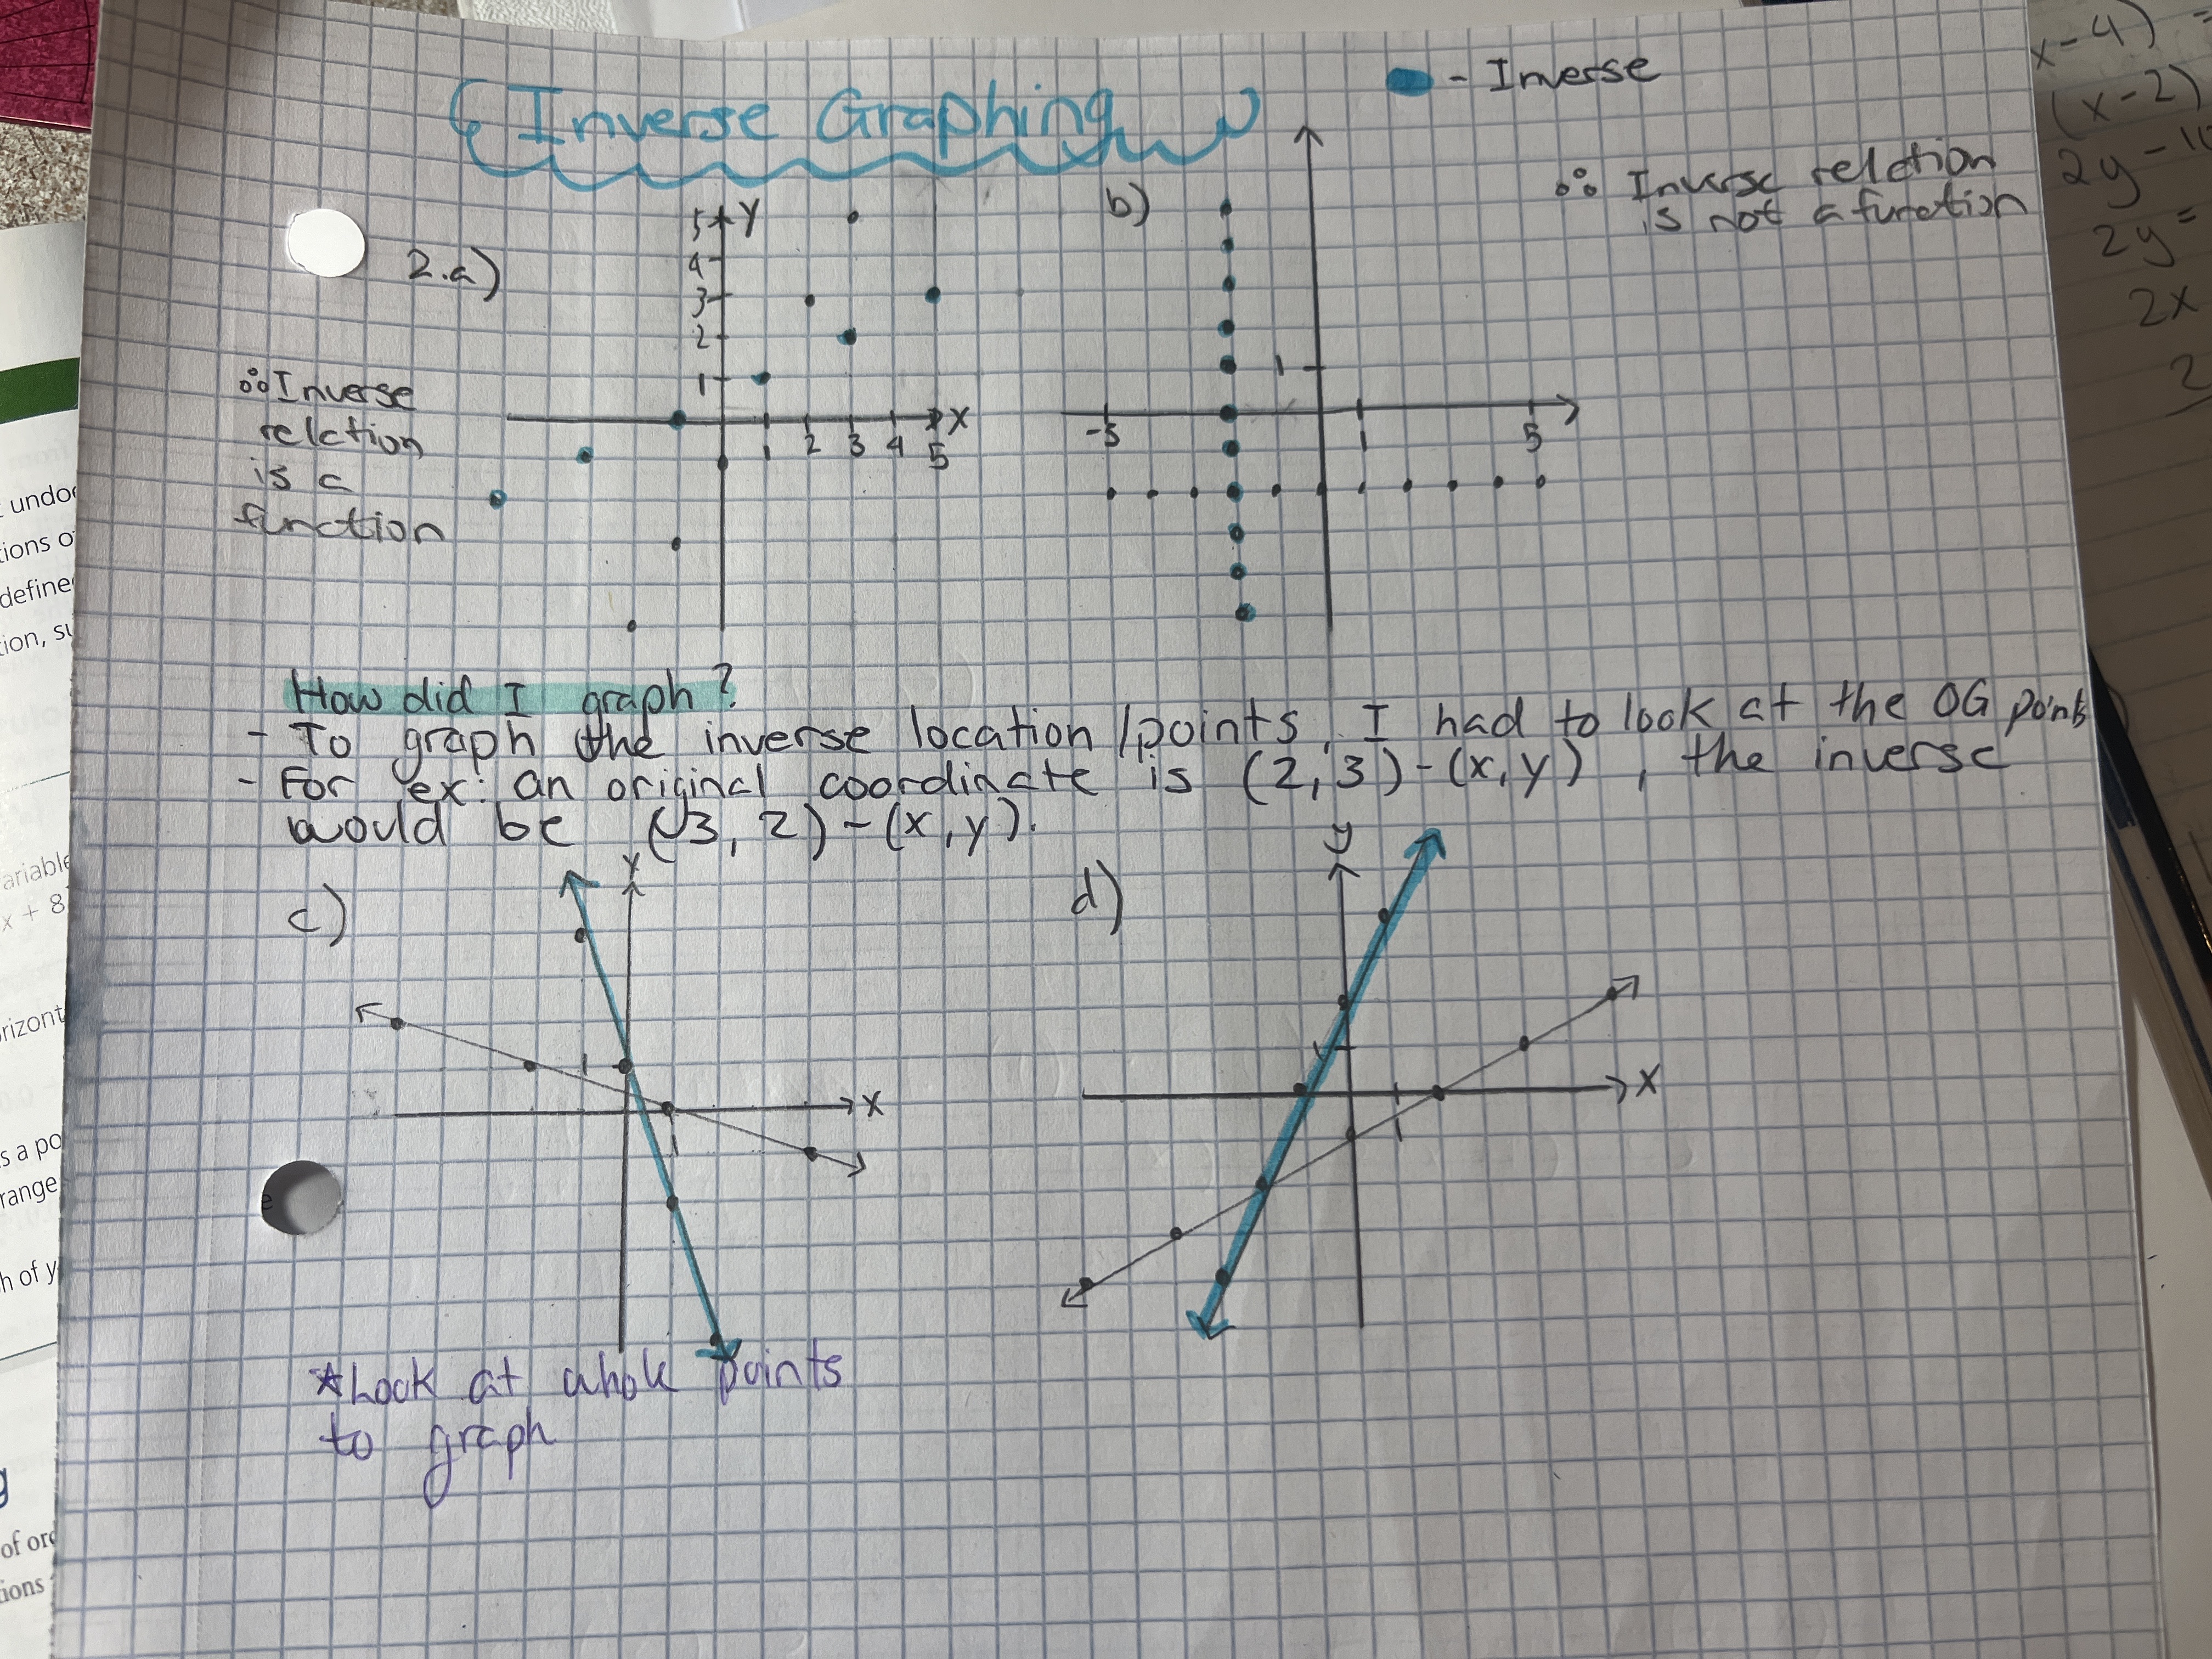 Inverse Graphing
- Inverse
2.a)
5 y
4
3
2
1
x
1 2 3 4 5
∴ Inverse
relation
is a
function
b)
∴ Inverse relation
is not a function
1
-5
1
5
How did I graph?
- To graph the inverse location/points, I had to look at the OG points
- For ex: an original coordinate is (2,3)-(x,y), the inverse
would be (3, 2)-(x,y).
c)
y
1
x
1
d)
y
1
x
1
*Look at whole points
to graph
x-4)
(x-2)
2y-
2y=
2x
2
undo
ions o
define
ion, su
ariable
x + 8
rizont
s a po
range
h of y
of ord
ions